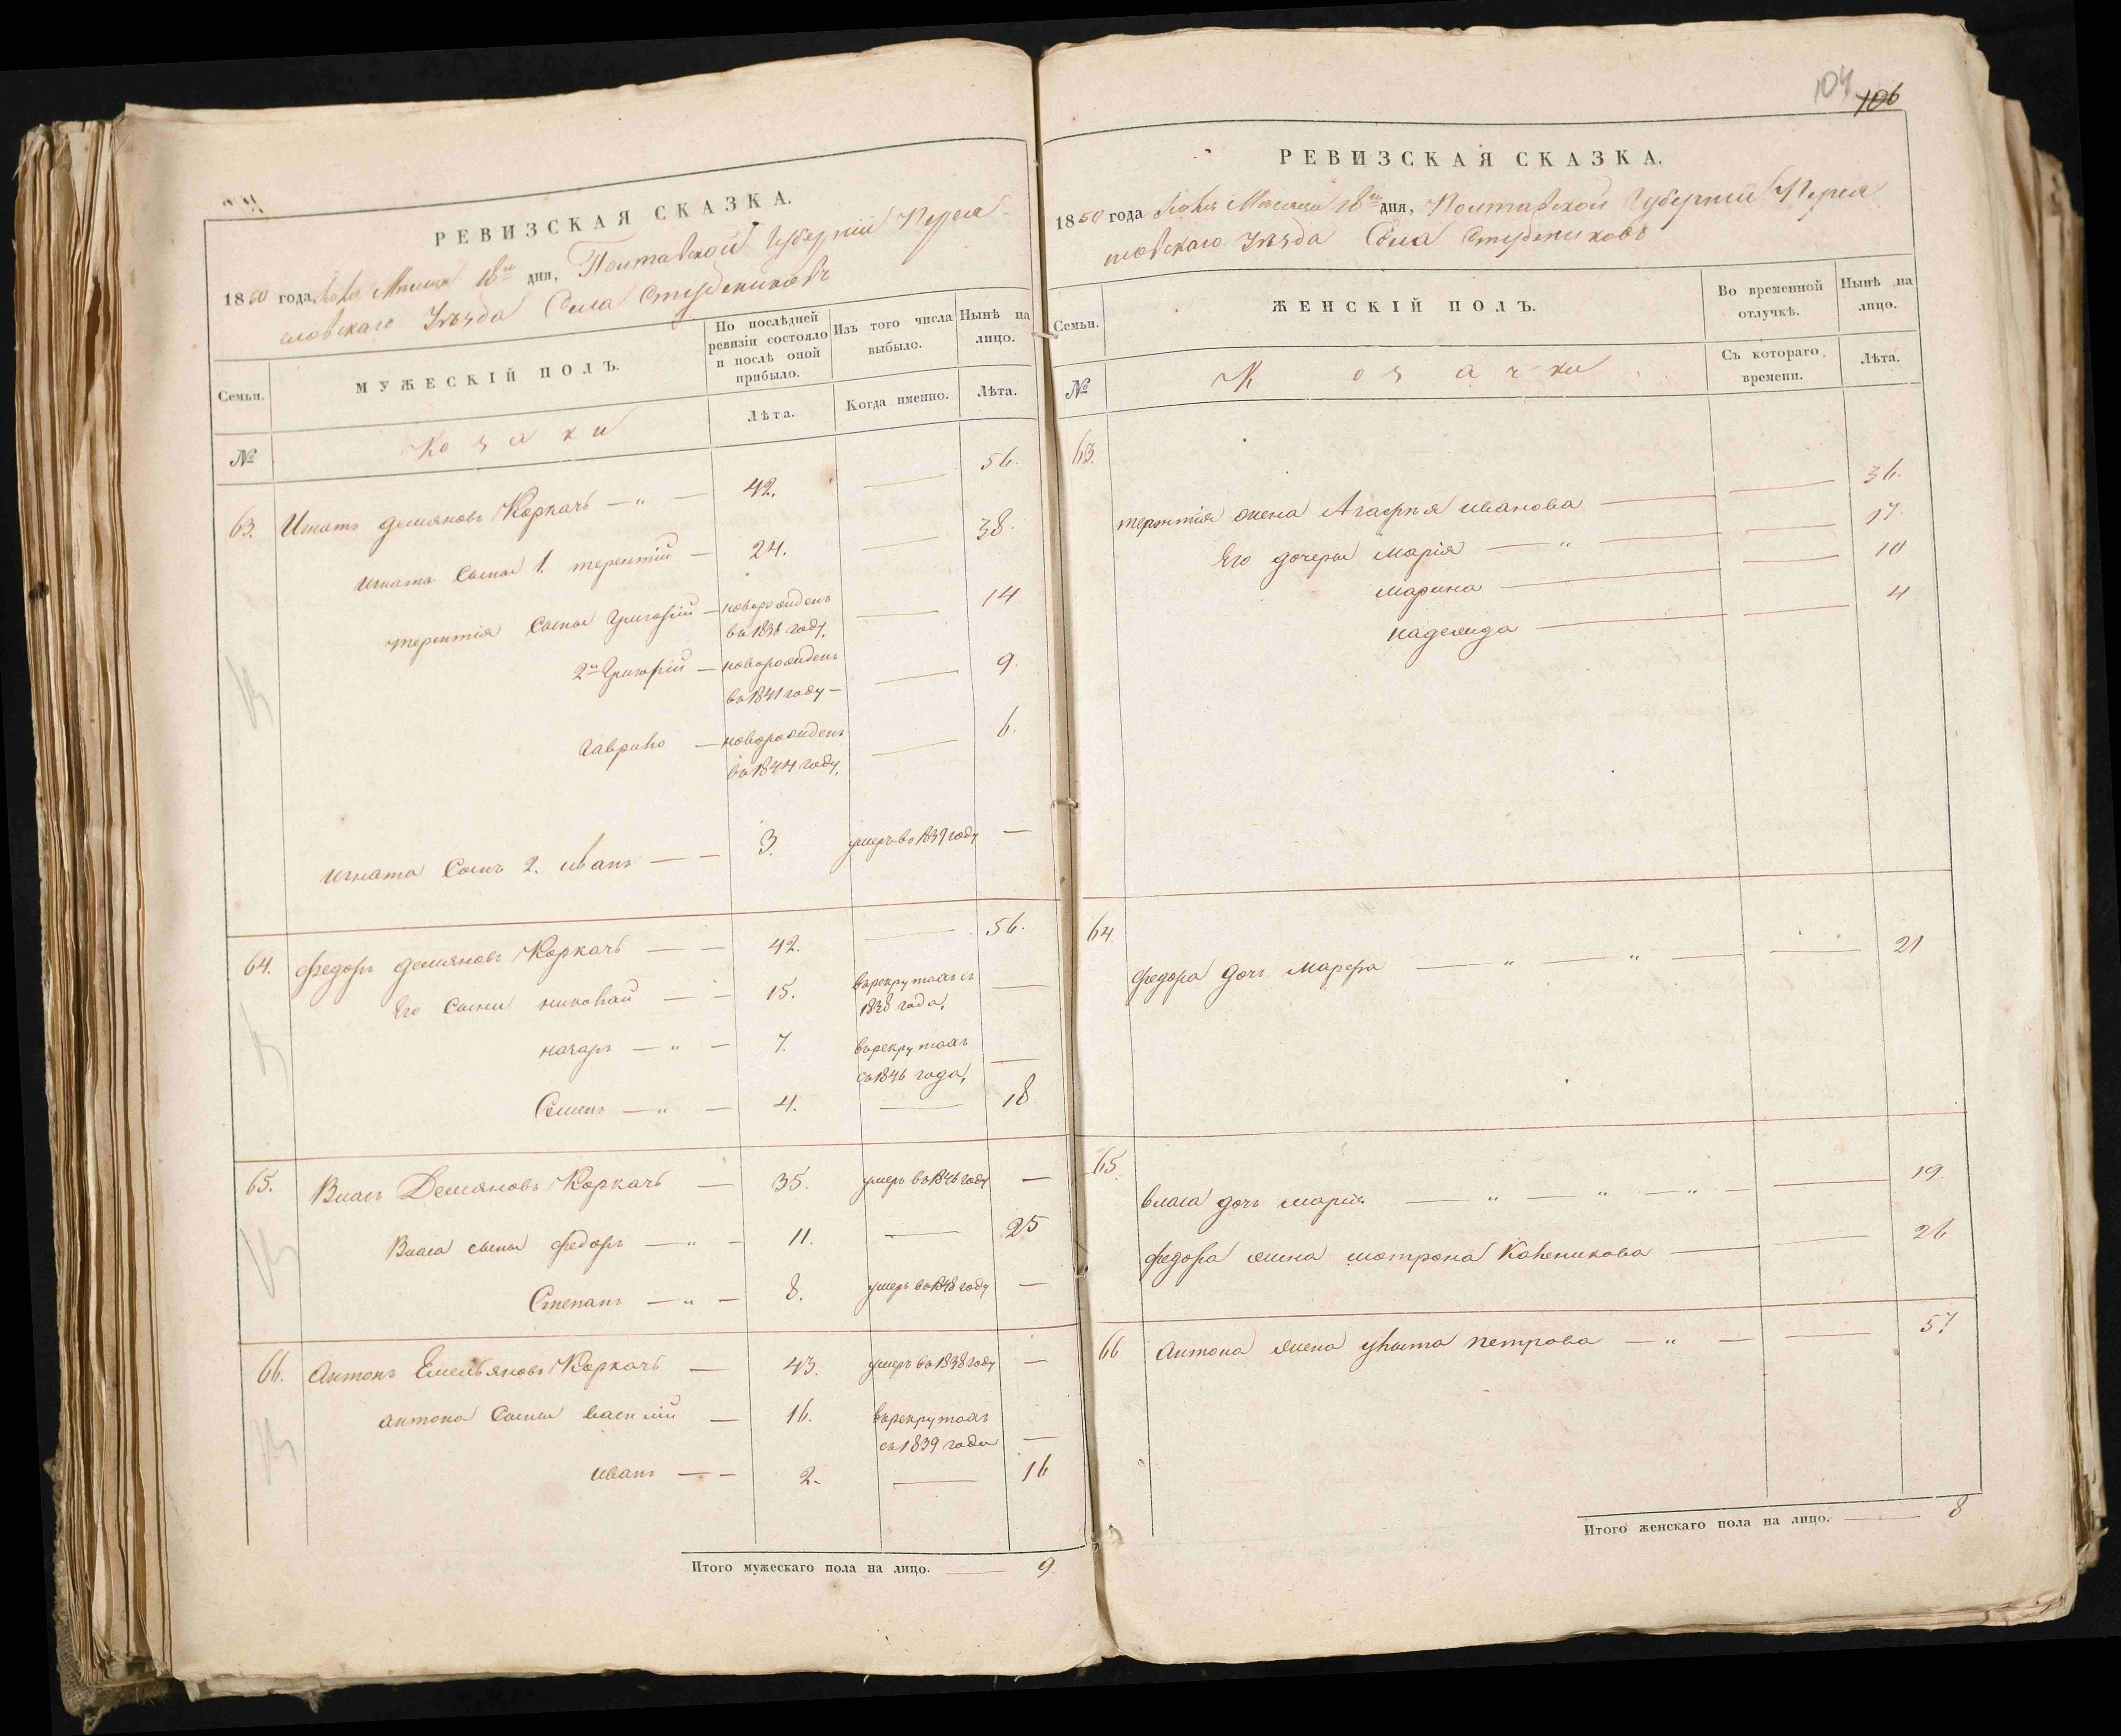 РЕВИЗСКАЯ СКАЗКА.
1850 года Июля Месяца 18го дня, Полтавской Губернии Перея-
словскаго Уѣзда Села Студениковъ
Семьи.
МУЖЕСКІЙ ПОЛЪ.
По послѣдней ревизіи состояло и послѣ оной прибыло.
Изъ того числа выбыло.
Нынѣ на лицо.
№
Козаки
Лѣта.
Когда именно.
Лѣта.
63. Игнатъ демяновъ Коркачъ — „ — 42. — 56.
игната Сыны 1. терентій — 24. — 38.
терентія Сыны Григорій — новорожденъ — 14
въ 1836 году.
2й Григорій — новорожденъ — 9.
въ 1841 году —
Гаврило — новорожденъ — 6.
въ 1844 году.
игната Сынъ 2. иванъ — — 3. умеръ въ 1839 году —
64. федоръ демяновъ Коркачъ — — 42. — 56.
Его Сыни николай — — 15. въ рекрутахъ съ —
1838 года,
назаръ — „ — 7. въ рекрутахъ
съ 1846 года, —
Семенъ — „ — 4. — 18
65. Власъ Демяновъ Коркачъ — 35. умеръ въ 1846 году —
Власа сыны федоръ — „ — 11. — 25
Степанъ — „ — 8. умеръ въ 1848 году —
66. Антонъ Емельяновъ Коркачъ — 43. умеръ въ 1838 году —
антона Сыны василій — 16. въ рекрутахъ
съ 1839 года —
иванъ — — 2. — 16
Итого мужескаго пола на лицо. — 9
104
106
РЕВИЗСКАЯ СКАЗКА.
1850 года Июля Месяца 18го дня, Полтавской Губерніи Перея
словскаго Уѣзда Села Студениковъ
Семьи.
ЖЕНСКІЙ ПОЛЪ.
Во временной отлучкѣ.
Нынѣ на лицо.
№
Козачки
Съ котораго времени.
Лѣта.
63.
терентія жена Агафия иванова — — 36.
Его дочеры марія — „ — — 17.
марина — — 10
надежда — — 4
64.
федора дочь марфа — „ — „ — — 21
65.
власа дочь марія — „ — „ — „ — — 19.
федора жена мотрона — — 26
66 Антона жена улита петрова — „ — — 57
Итого женскаго пола на лицо. — 8